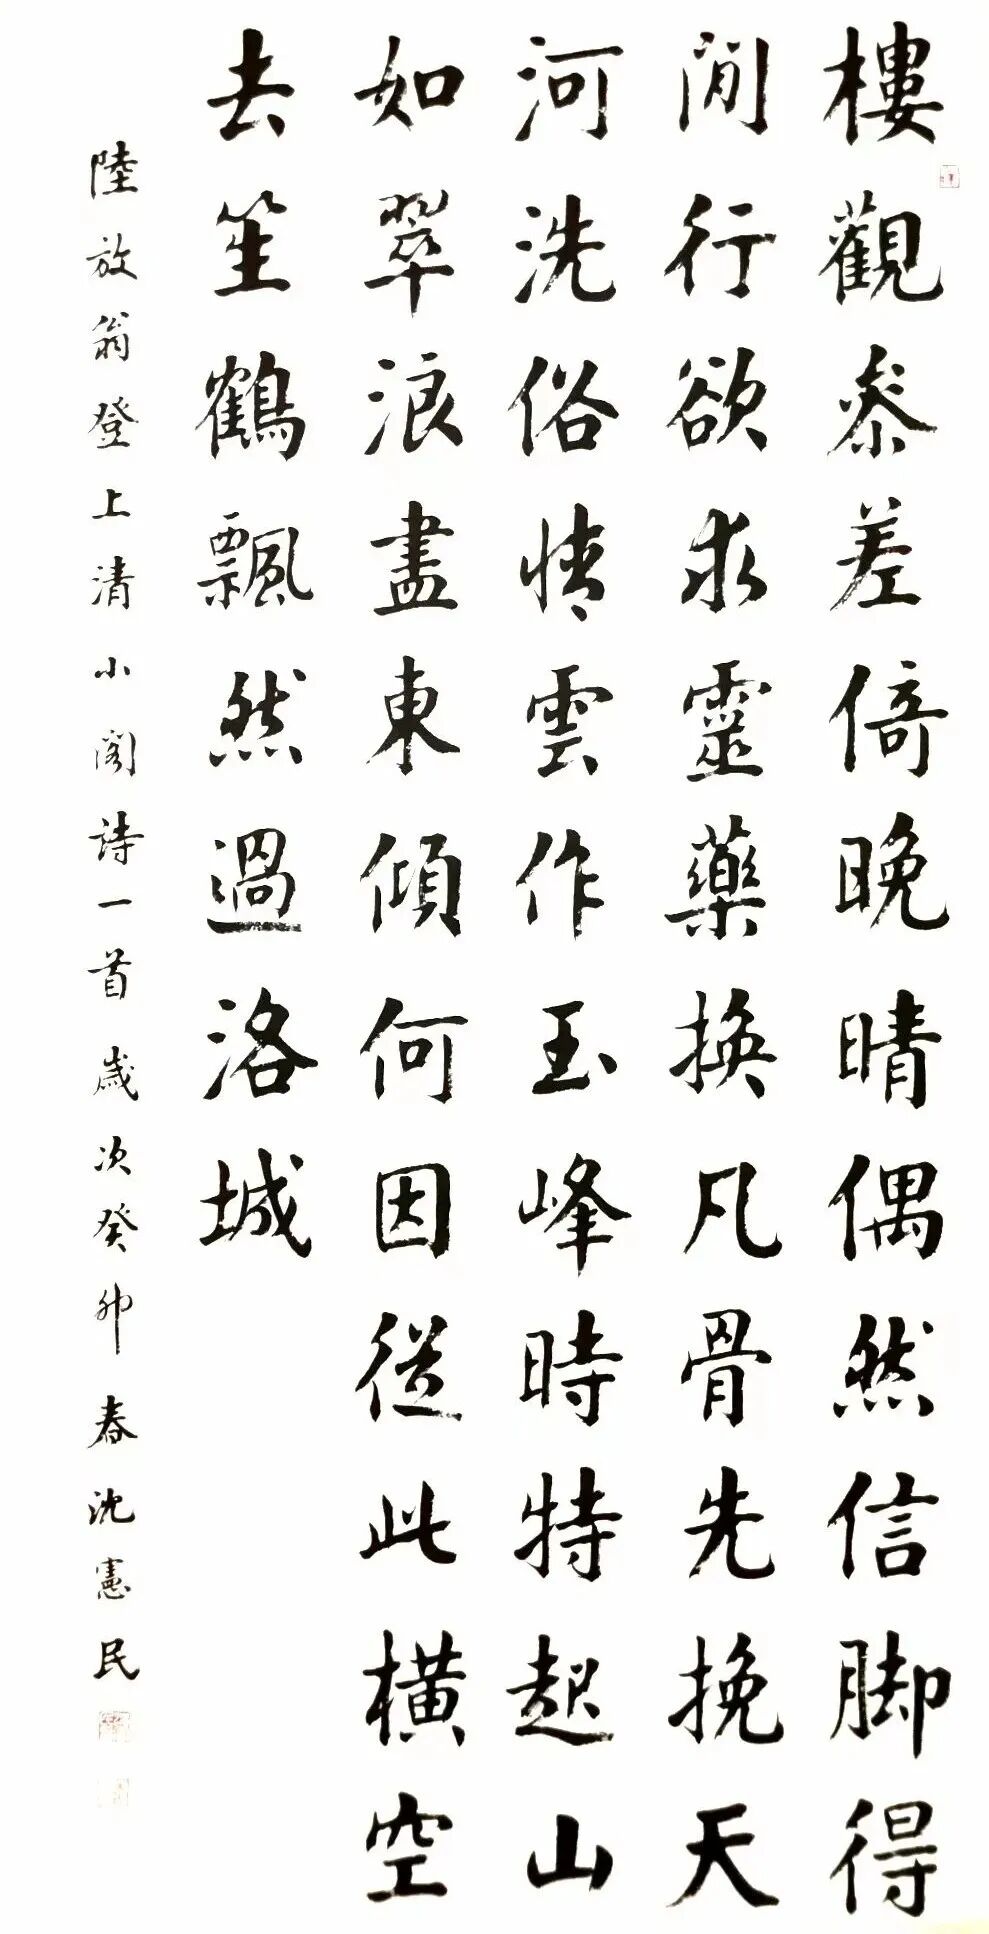 樓觀叅差倚晚晴偶然信脚得
閒行欲求靈藥換凡骨先挽天
河洗俗情雲作玉峰時特起山
如翠浪盡東傾何因從此橫空
去笙鶴飄然過洛城
陸放翁登上清小閣詩一首歲次癸卯春沈憲民